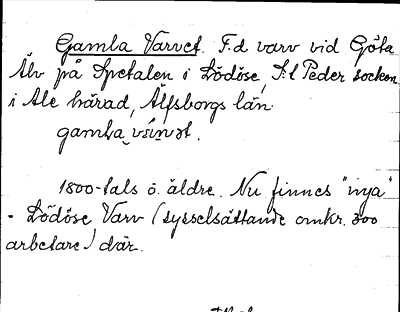 Gamla Varvet. F.d varv vid Göta
Älv på Spetalen i Lödöse, S:t Peder socken
i Ale härad, Älfsborgs län.
gamla
1800-tals o. äldre. Nu finnes "nya"
- Lödöse Varv (sysselsättande omkr. 300
arbetare) där.